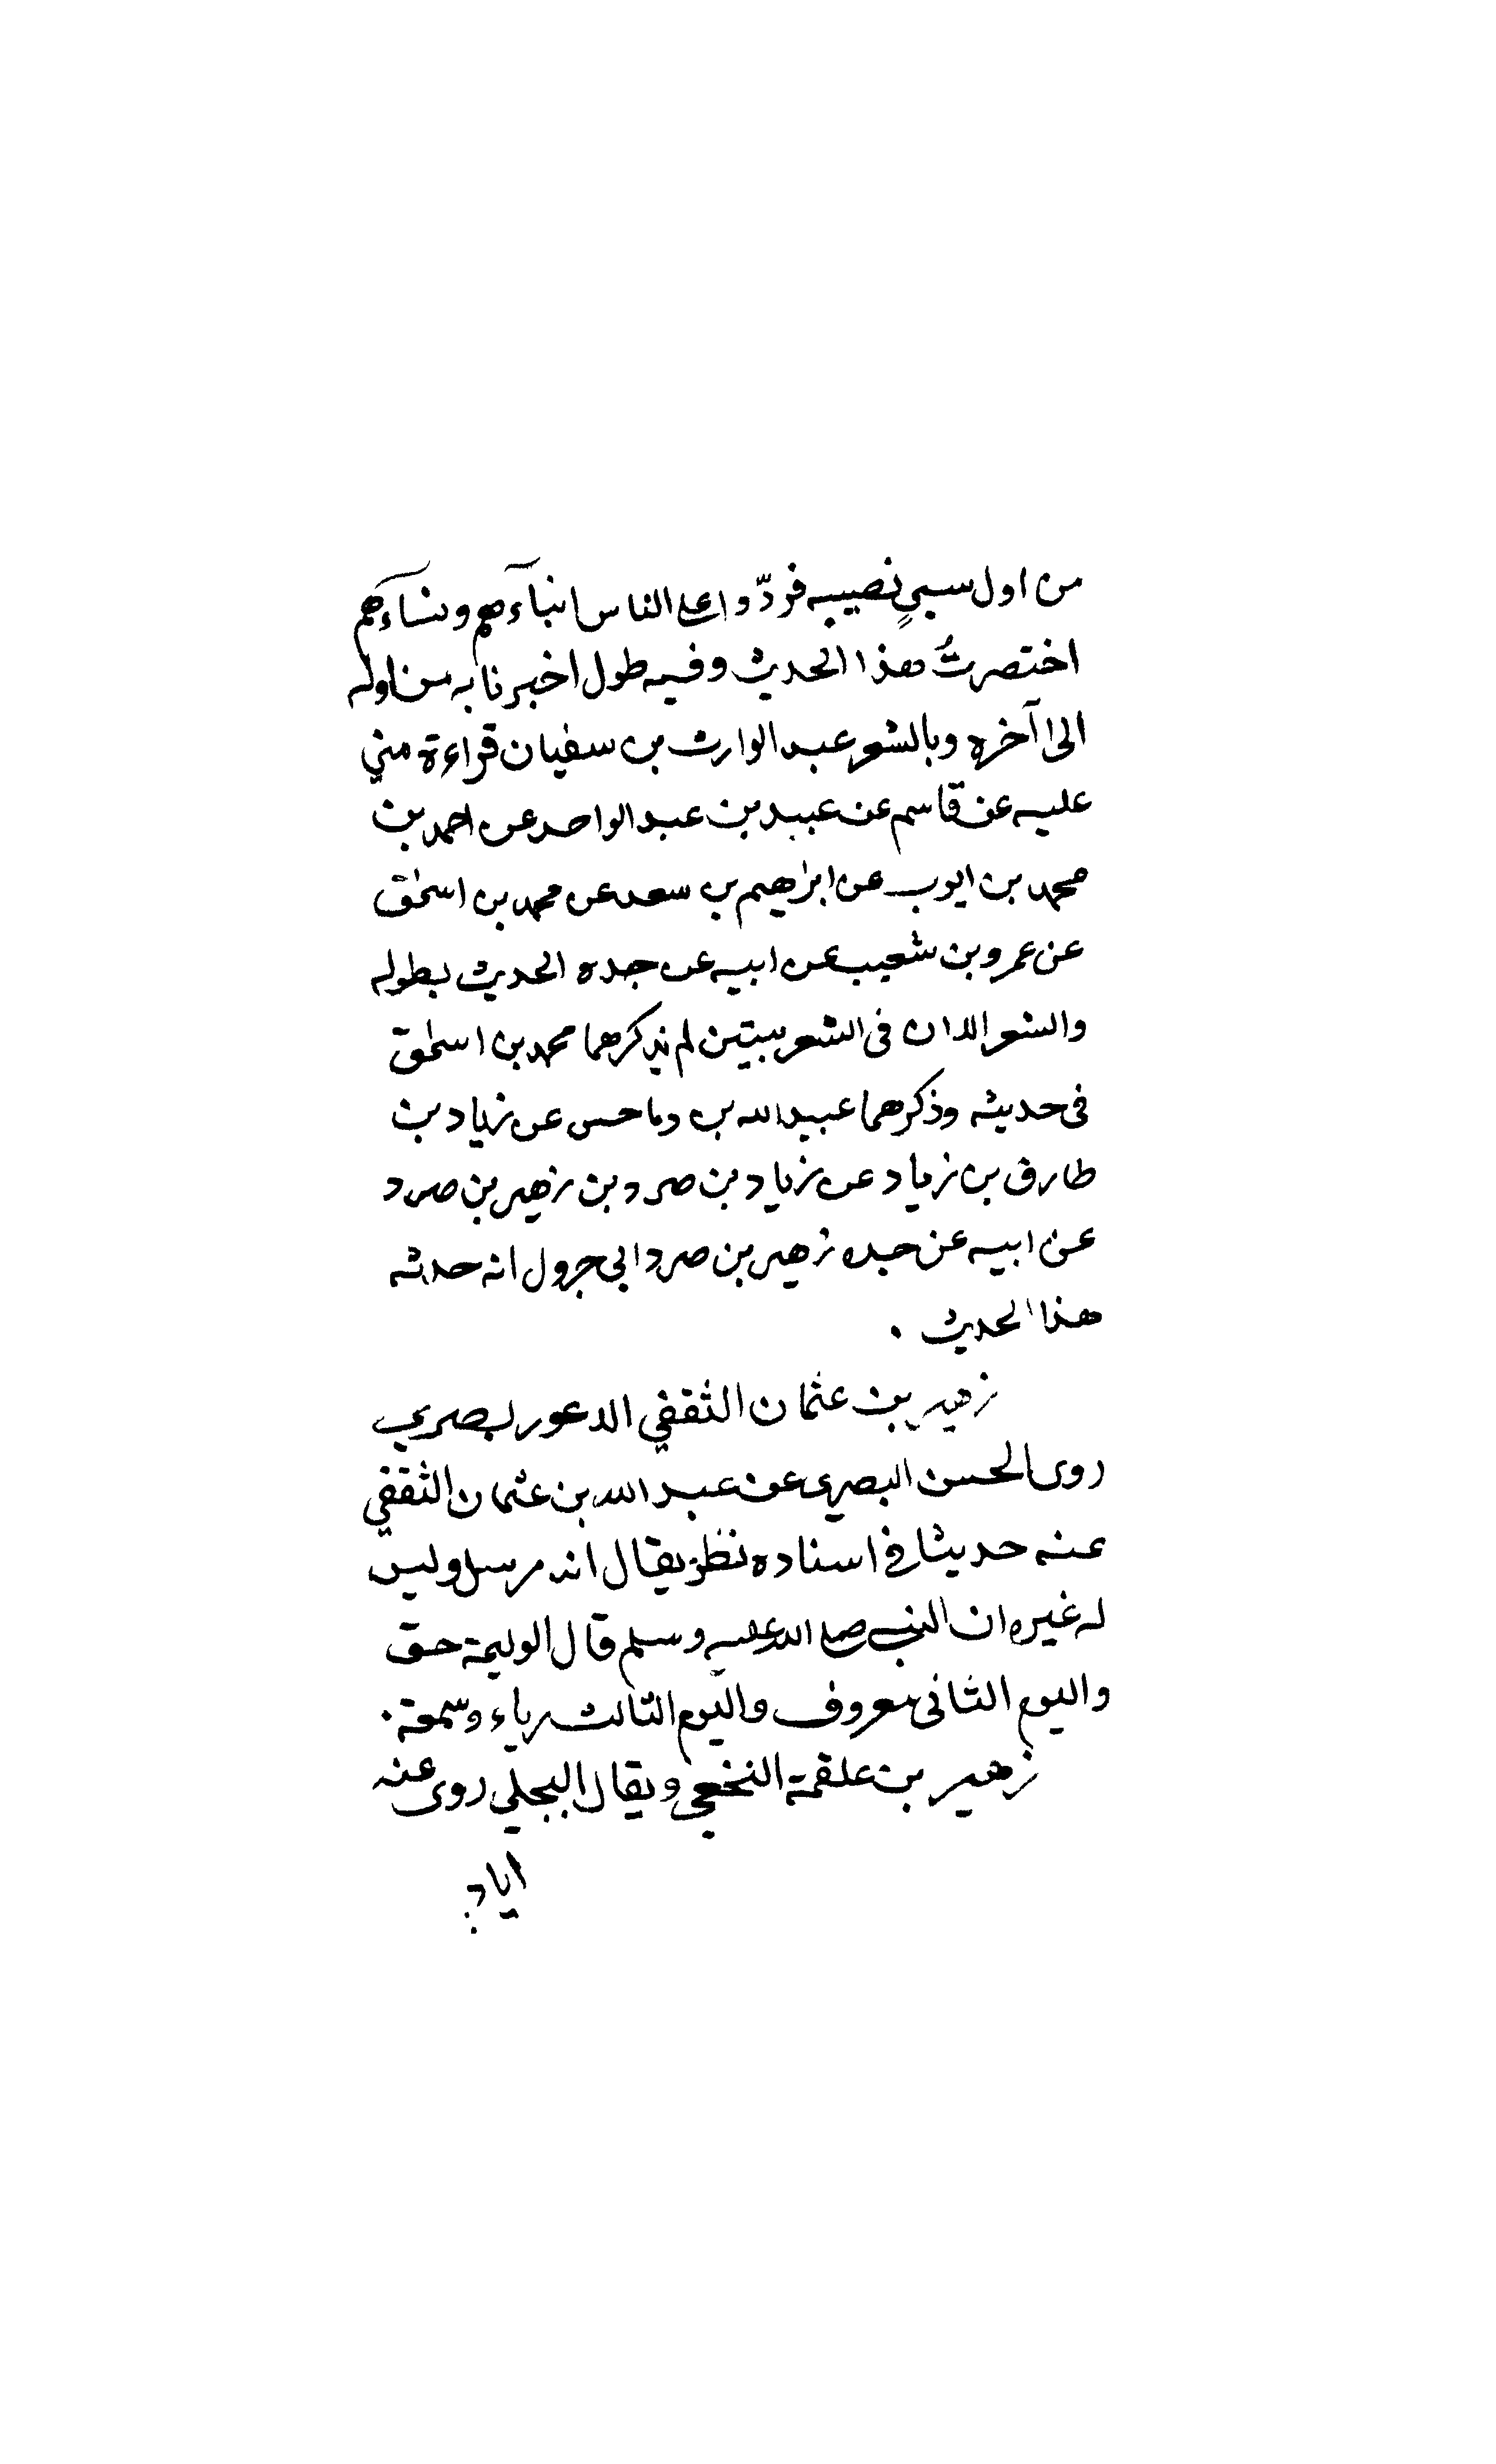 من اول سبيٍ نصيبه فردّوا على الناس ابناءَهم ونساءَهم
اختصرتُ هذا الحديث وفيه طول اخبرنا به من اوله
الى آخره وبالشعر عبد الوارث بن سفيان قراءة مني
عليه عن قاسم عن عبيد بن عبد الواحد عن احمد بن
محمد بن ايوب عن ابراهيم بن سعد عن محمد بن اسحق
عن عمرو بن شعيب عن ابيه عن جده الحديث بطوله
والشعر الا ان فى الشعر بيتين لم يذكرهما محمد بن اسحق
فى حديثه وذكرهما عبيد الله بن رماحس عن زياد بن
طارق بن زياد عن زياد بن صرد بن زهير بن صرد
عن ابيه عن جده زهير بن صرد ابي جرول انه حدثه
هذا الحديث .
زهير بن عثمان الثقفي الاعور بصري
روى الحسن البصري عن عبد الله بن عثمان الثقفي
عنه حديثا في اسناده نظر يقال انه مرسل وليس
له غيره ان النبي صلى الله عليه وسلم قال الوليمة حق
واليوم الثانى معروف واليوم الثالث رياء وسمعة .
زهير بن علقمة النخعي ويقال البجلي روى عنه
اياد